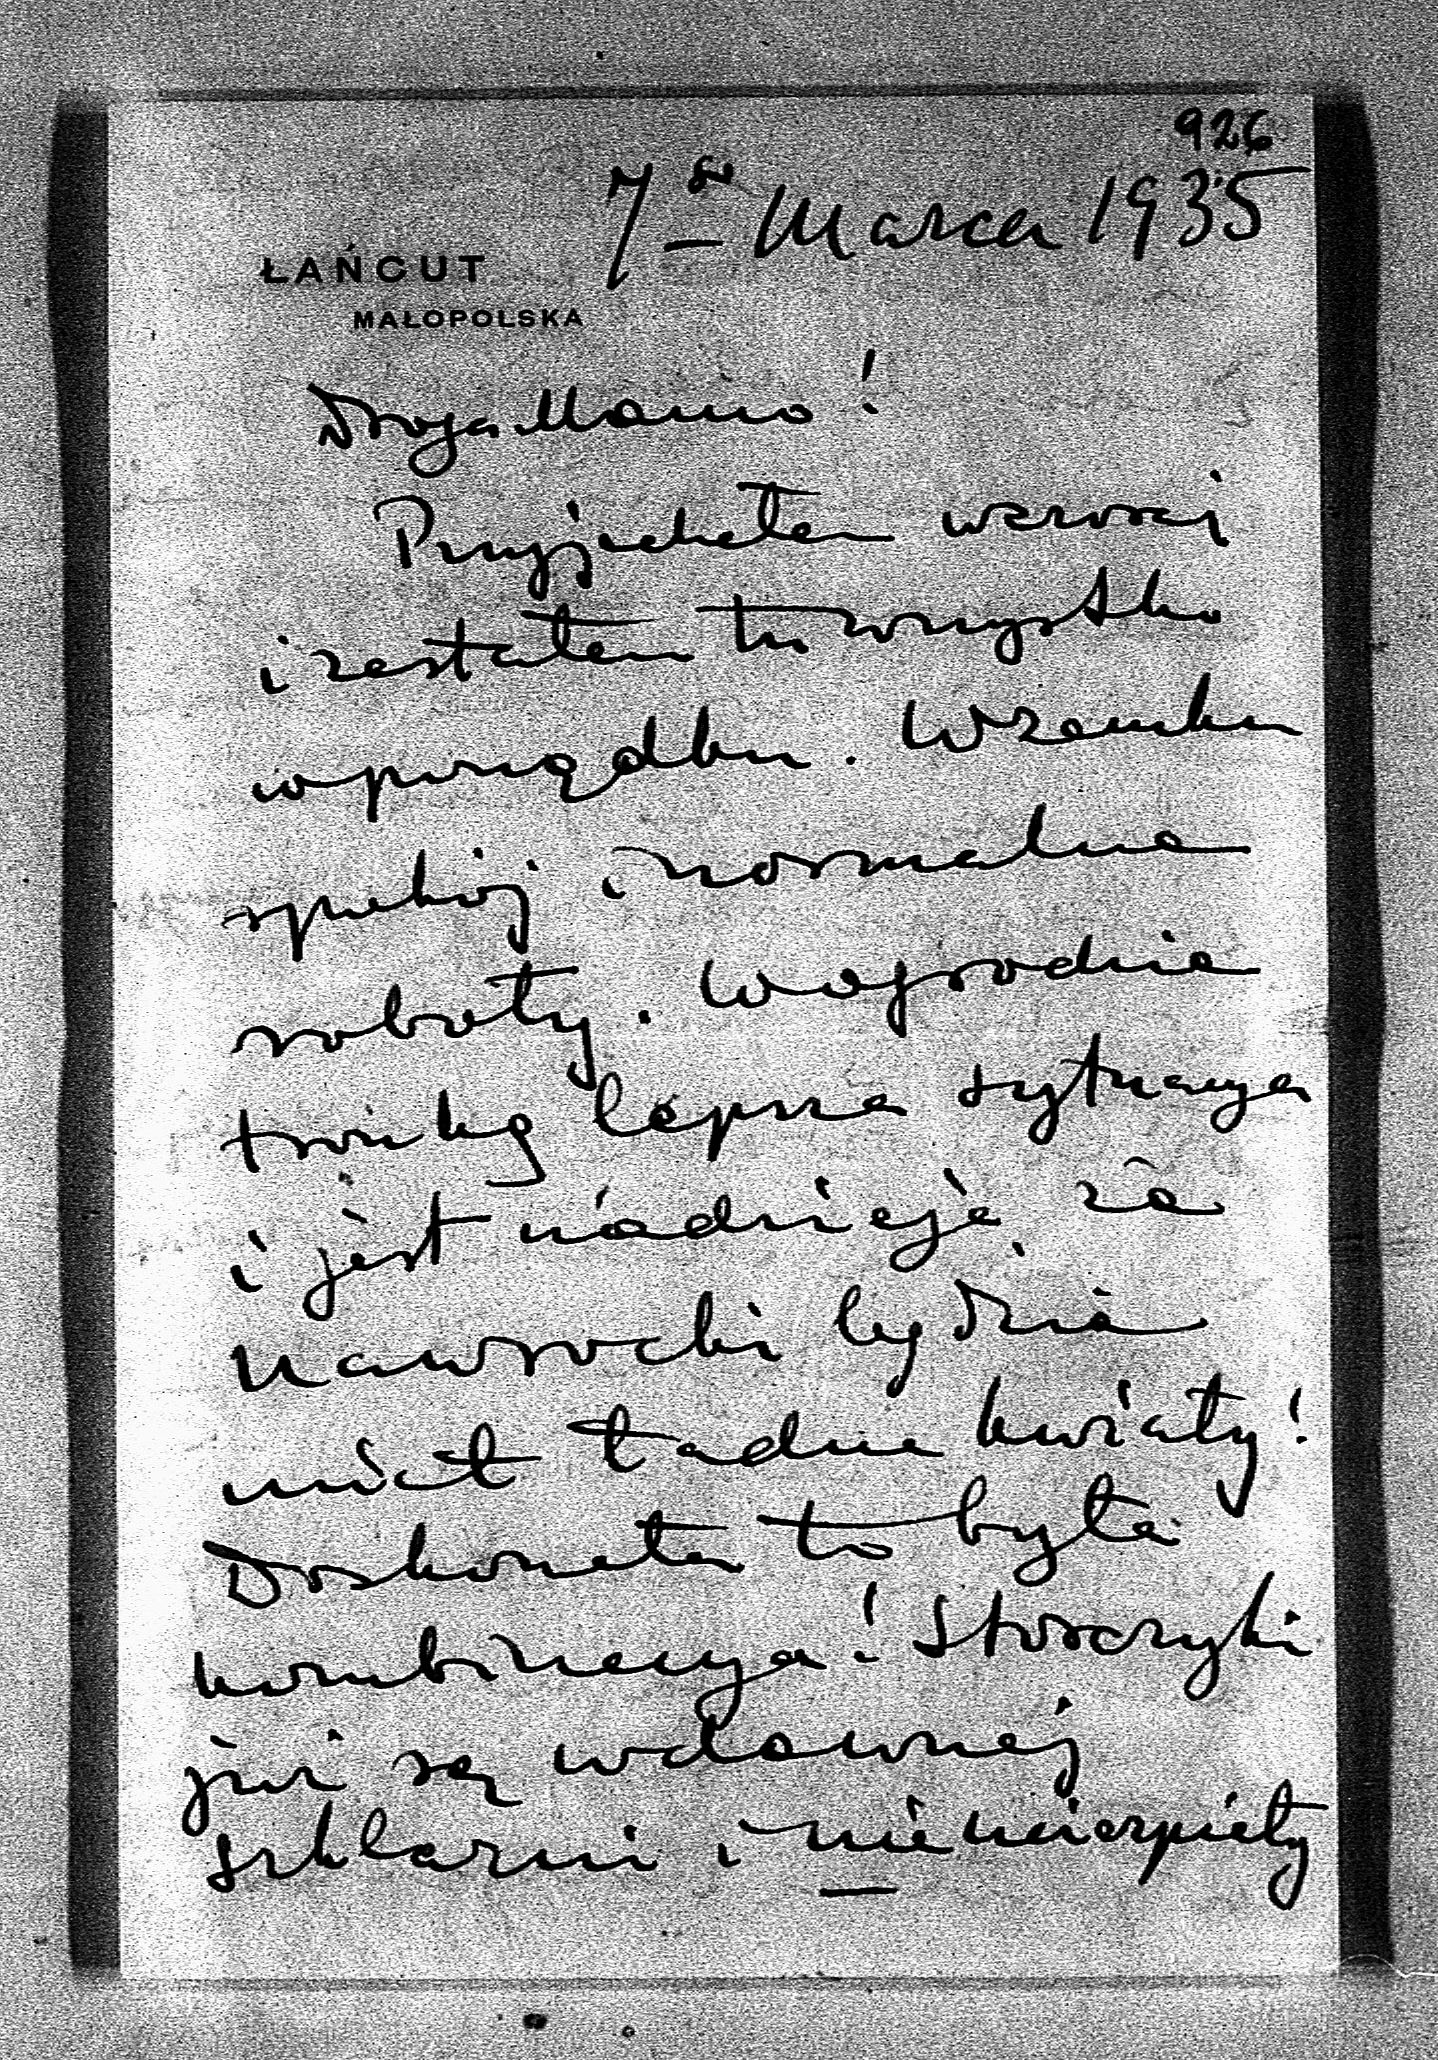 926
7go Marca 1935
ŁAŃCUT
MAŁOPOLSKA
Droga Mamo!
Przyjechałem wczoraj
i zestałem tu wszystko
w porządku. W zamku
spokój i normalne
roboty. W ogrodzie
trochę lepsza sytuacya
i jest nadzieja że
Nawrocki będzie
miał ładne kwiaty!
Doskonała to była
kombinacya! Storczyki
już są w dawnej
szklarni i nie ucierpiały